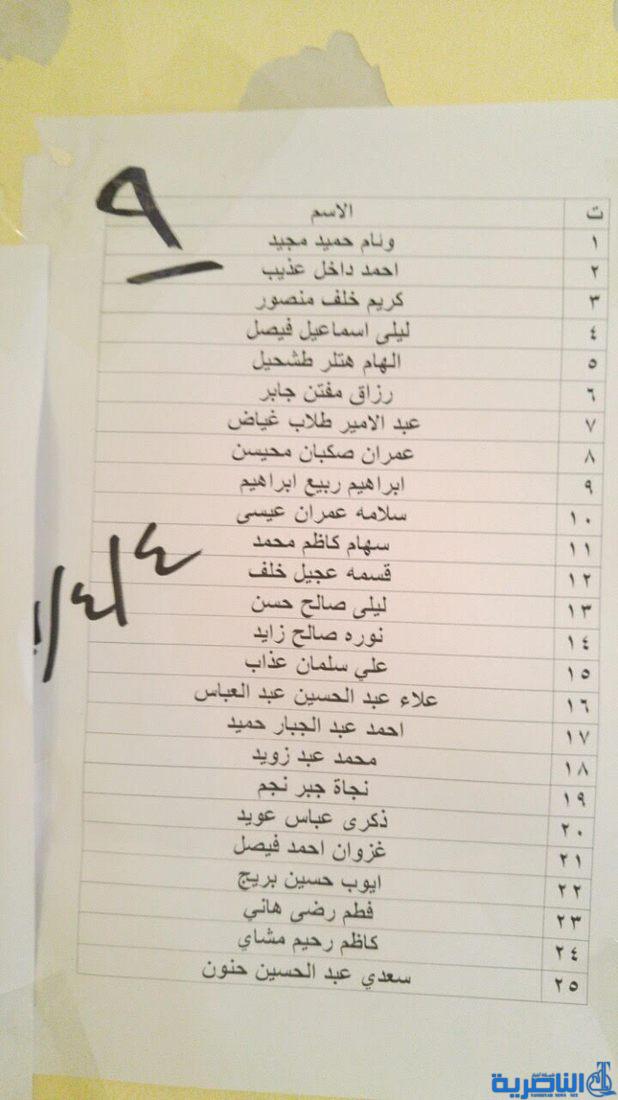 ٩
ت الاسم
١ ونام حميد مجيد
٢ احمد داخل عذيب
٣ كريم خلف منصور
٤ ليلى اسماعيل فيصل
٥ الهام هتلر طشحيل
٦ رزاق مفتن جابر
٧ عبد الامير طلاب غياض
٨ عمران صكبان محيسن
٩ ابراهيم ربيع ابراهيم
١٠ سلامه عمران عيسى
١١ سهام كاظم محمد
١٢ قسمه عجيل خلف
١٣ ليلى صالح حسن
١٤ نوره صالح زايد
١٥ علي سلمان عذاب
١٦ علاء عبد الحسين عبد العباس
١٧ احمد عبد الجبار حميد
١٨ محمد عبد زويد
١٩ نجاة جبر نجم
٢٠ ذكرى عباس عويد
٢١ غزوان احمد فيصل
٢٢ ايوب حسين بريج
٢٣ فطم رضى هاني
٢٤ كاظم رحيم مشاي
٢٥ سعدي عبد الحسين حنون
٤/٤/
شبكة أخبار
الناصرية
NASIRIYAH NEWS NET